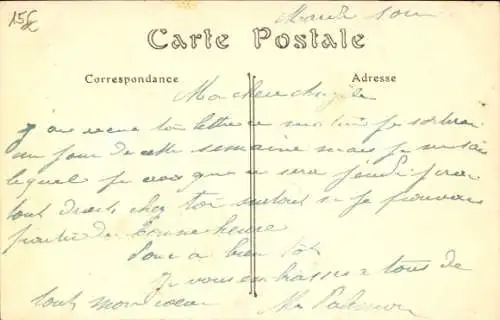 15€
Mardi soir
Carte Postale
Correspondance
Adresse
Ma chère
J'ai reçu ton lettre ce matin je
un jour de cette semaine mais je ne sais
lequel je crois que ce sera jeudi j'irai
tout droit chez toi surtout si je pouvais
partir de bonne heure
Donc a bien tôt
Je vous embrasse tous de
tout mon coeur